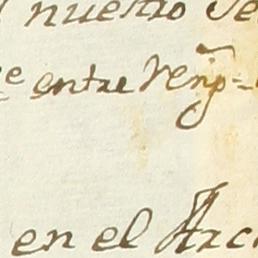 nuestro Se
entre Reng-
en el Arc